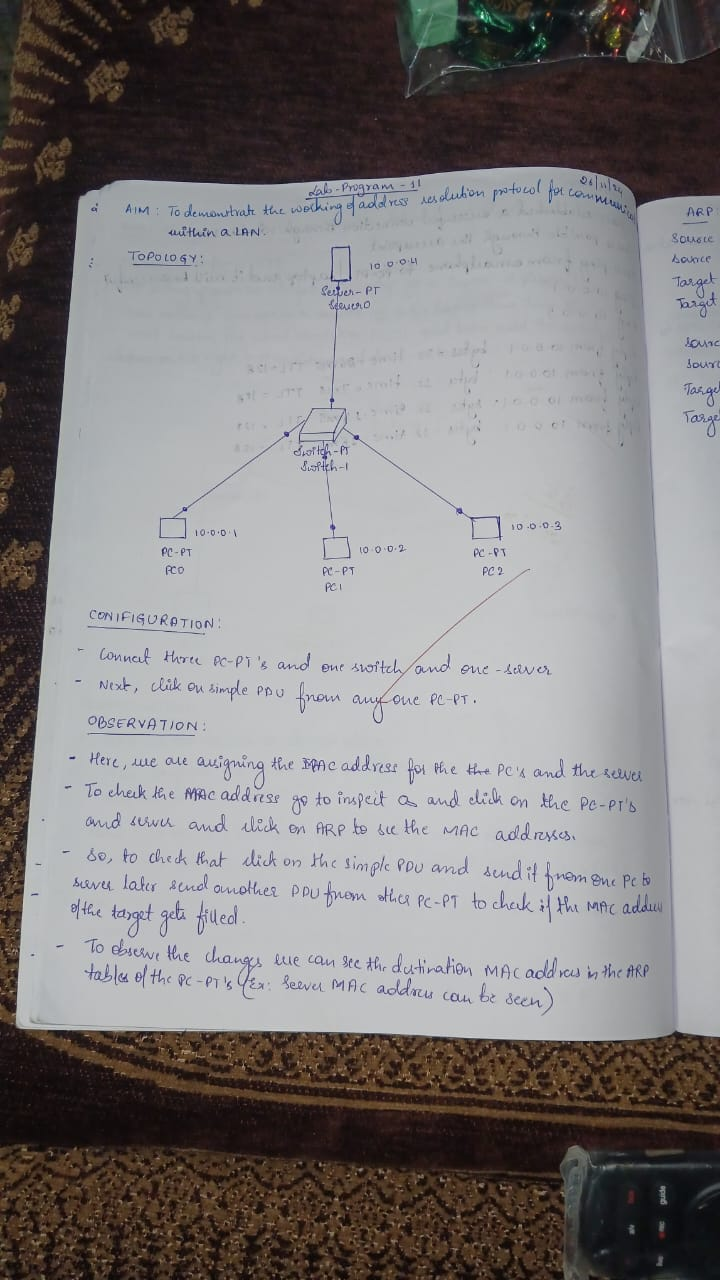 Lab-Program-11
26/11/24
AIM: To demonstrate the working of address resolution protocol for communic
within a LAN.
TOPOLOGY:
10.0.0.4
Server-PT
Server0
Switch-PT
Switch-1
10.0.0.1
PC-PT
PC0
10.0.0.2
PC-PT
PC1
10.0.0.3
PC-PT
PC2
CONIFIGURATION:
- Connect three PC-PT's and one switch and one-server
- Next, click on simple PDU from any one PC-PT.
OBSERVATION:
- Here, we are assigning the address for the the PC's and the server
- To check the MAC address go to inspect and click on the PC-PT's
and server and click on ARP to see the MAC addresses.
- So, to check that click on the simple PDU and send it from one PC to
server later send another PDU from other PC-PT to check if the MAC address
of the target gets filled.
- To observe the changes we can see the destination MAC address in the ARP
tables of the PC-PT's (Ex: Server MAC address can be seen)
ARP
Source
Source
Target
Target
Sourc
Sourc
Target
Targe
guide